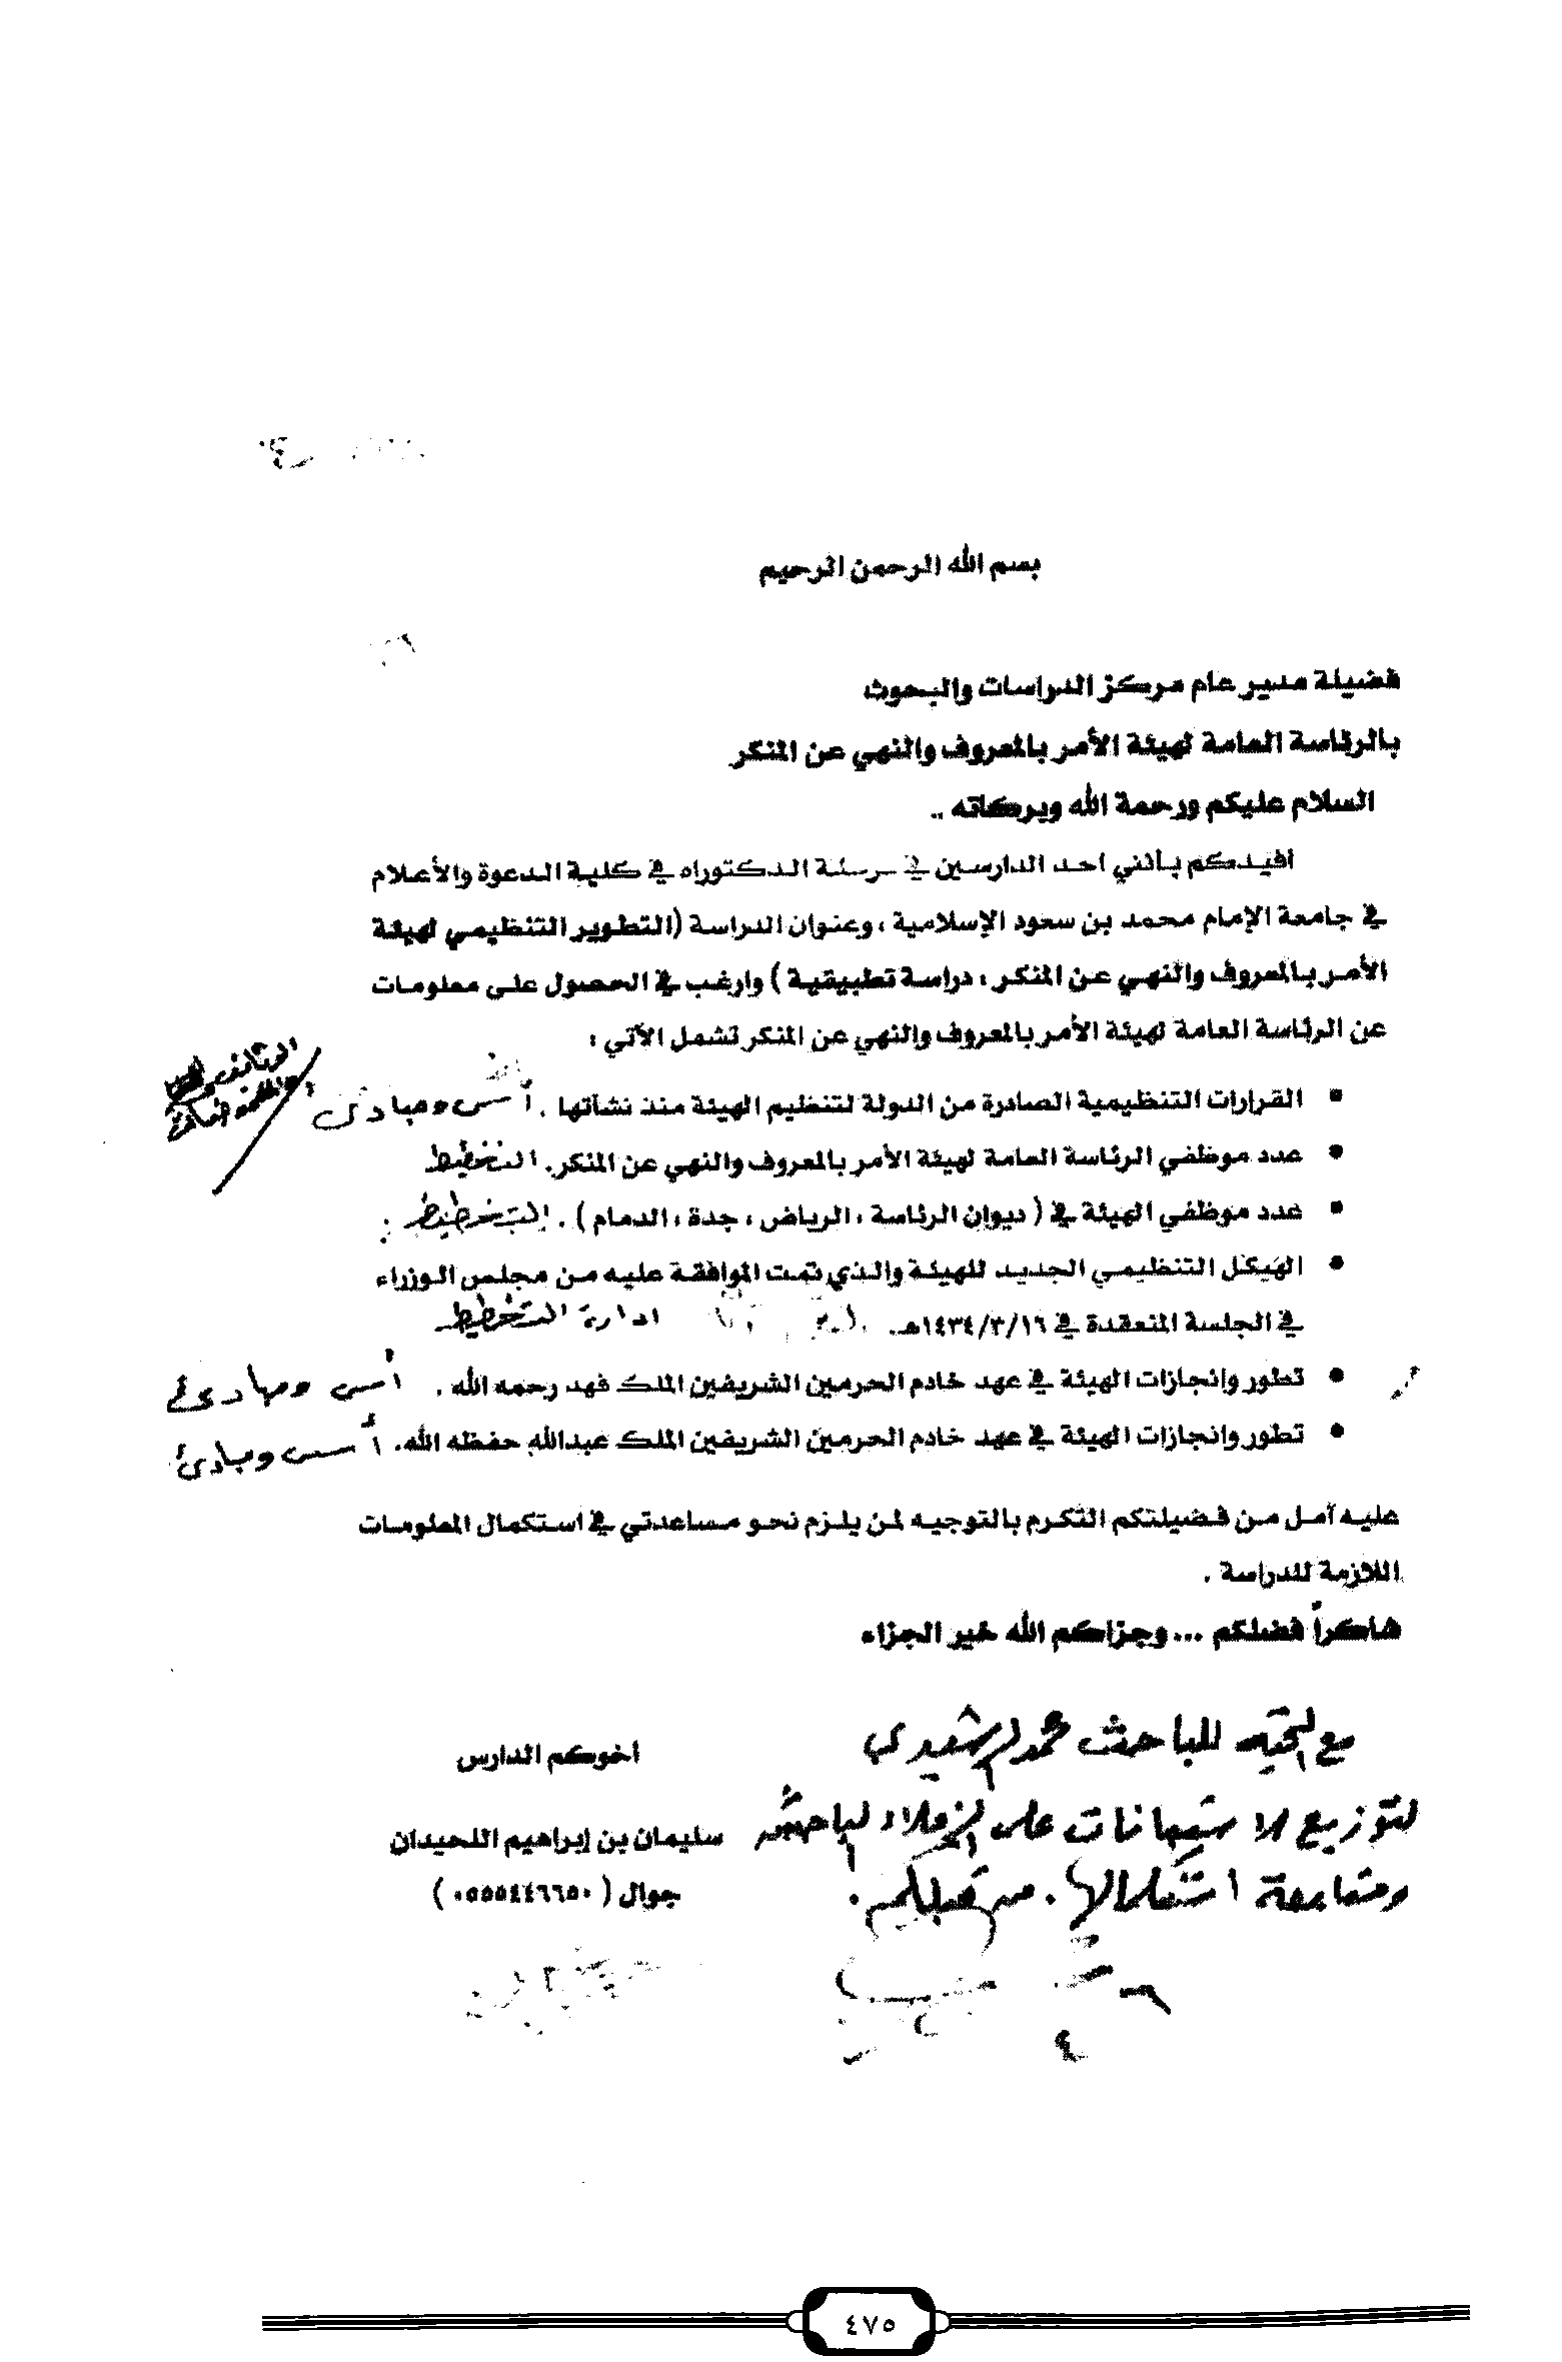 بسم الله الرحمن الرحيم
فضيلة مدير عام مركز الدراسات والبحوث
بالرئاسة العامة لهيئة الأمر بالمعروف والنهي عن المنكر
السلام عليكم ورحمة الله وبركاته ..
افيدكم بأنني احد الدارسين في مرحلة الدكتوراه في كلية الدعوة والأعلام
في جامعة الإمام محمد بن سعود الإسلامية ، وعنوان الدراسة (التطوير التنظيمي لهيئة
الأمر بالمعروف والنهي عن المنكر ، دراسة تطبيقية ) وارغب في الحصول على معلومات
عن الرئاسة العامة لهيئة الأمر بالمعروف والنهي عن المنكر تشمل الآتي :
• القرارات التنظيمية الصادرة من الدولة لتنظيم الهيئة منذ نشأتها . أسس ومبادئ
• عدد موظفي الرئاسة العامة لهيئة الأمر بالمعروف والنهي عن المنكر. التخطيط
• عدد موظفي الهيئة في ( ديوان الرئاسة ، الرياض ، جدة ، الدمام ) . التخطيط
• الهيكل التنظيمي الجديد للهيئة والذي تمت الموافقة عليه من مجلس الوزراء
في الجلسة المنعقدة في ١٤٣٤/٣/١٦هـ. ادارة التخطيط
• تطور وانجازات الهيئة في عهد خادم الحرمين الشريفين الملك فهد رحمه الله . أسس ومبادئ
• تطور وانجازات الهيئة في عهد خادم الحرمين الشريفين الملك عبدالله حفظه الله. أسس ومبادئ
عليه آمل من فضيلتكم التكرم بالتوجيه لمن يلزم نحو مساعدتي في استكمال المعلومات
اللازمة للدراسة .
شاكراً فضلكم ... وجزاكم الله خير الجزاء
مع التحية للباحث محمد الرشيدي
لتوزيع الاستبانات على الزملاء الباحثين
ومتابعة استكمالها . من قبلكم .
اخوكم الدارس
سليمان بن إبراهيم اللحيدان
جوال ( ٠٥٥٥٤٤٦٦٥٠ )
٤٧٥